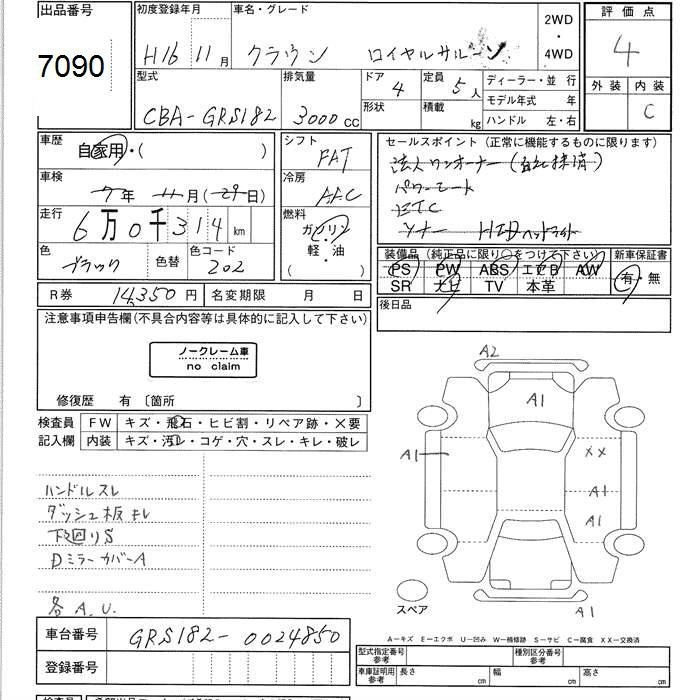 出品番号 初度登録年月 車名・グレード 2WD ・ 4WD 評価点
7090 H16 11月 クラウン ロイヤルサルーン 4
型式 排気量 ドア 定員 ディーラー・並 行 外装 内装
CBA-GRS182 3000cc 4 5人 モデル年式 年 C
形状 積載 kg ハンドル 左・右
車歴 シフト セールスポイント (正常に機能するものに限ります)
自家用・( ) FAT 法人ワンオーナー
車検 冷房 パワーシート
7年 11月 (29日) AAC ETC
走行 燃料 HIDヘッドライト
6万0千314km ガソリン・ 軽・油 ( )
色 色替 色コード 装備品 (純正品に限り○をつけて下さい) 新車保証書
ブラック 202 PS PW ABS エアB AW 有・無
SR ナビ TV 本革
R券 14,350円 名変期限 月 日 後日品
注意事項申告欄(不具合内容等は具体的に記入して下さい)
ノークレーム車
no claim
修復歴 有 〔箇所 〕
検査員 FW キズ・飛石・ヒビ割・リペア跡・×要
記入欄 内装 キズ・汚レ・コゲ・穴・スレ・キレ・破レ
A2
A1
A1 XX
A1
A1
ハンドルスレ
ダッシュ板キレ
下回りS
DミラーカバーA
各A.U.
スペア A1
A-キズ E-エクボ U-凹み W-補修跡 S-サビ C-腐食 XX-交換済
車台番号 GRS182-0024850
登録番号
型式指定番号 参考 種別区分番号 参考
車庫証明用 参考 長さ cm 幅 cm 高さ cm